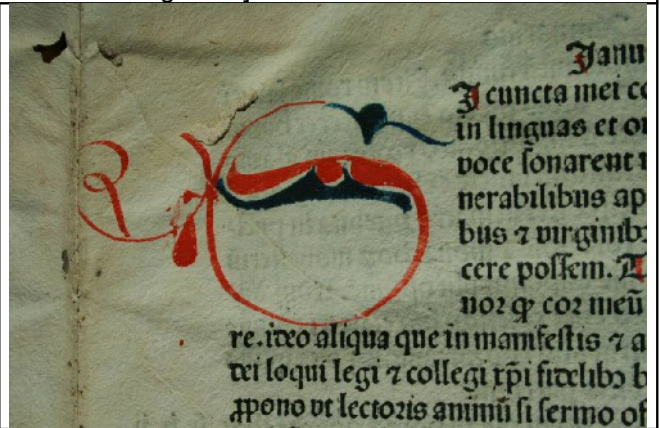 Janu
J cuncta mei co
in linguas et o
voce sonarent
nerabilibus ap
bus ⁊ virginibꝫ
cere possem.
nor ꝙ cor meū
re. ideo aliqua que in manifestis ⁊ a
dei loqui legi ⁊ collegi xp̄i fidelibꝫ b
ꝓpono vt lectoris animū si sermo of